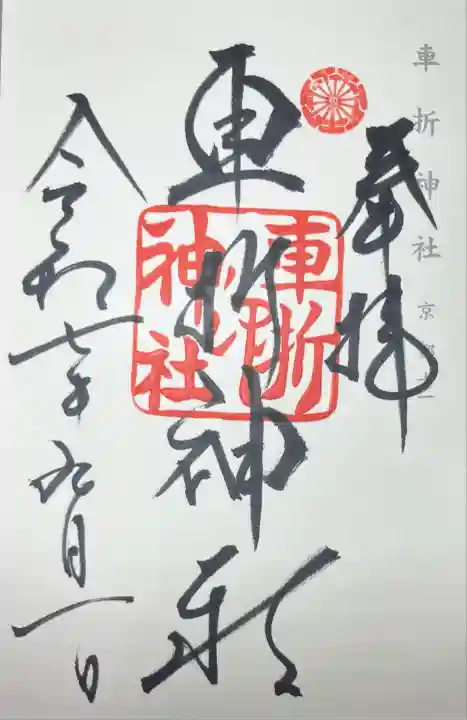 車折神社 京
奉拝
車折神社
車折
神社
令和七年九月一日